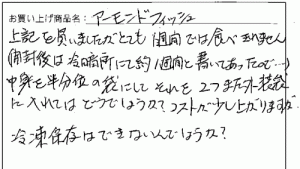 お買い上げ商品名: アーモンドフィッシュ
上記を買いましたがとても1週間では食べきれません
(開封後は冷暗所にて約1週間と書いてあったので…)
中身を半分位の袋にして それを 2つまた外装袋
に入れては どうでしょうか? コストが少し上がりますが
冷凍保存はできないんでしょうか?